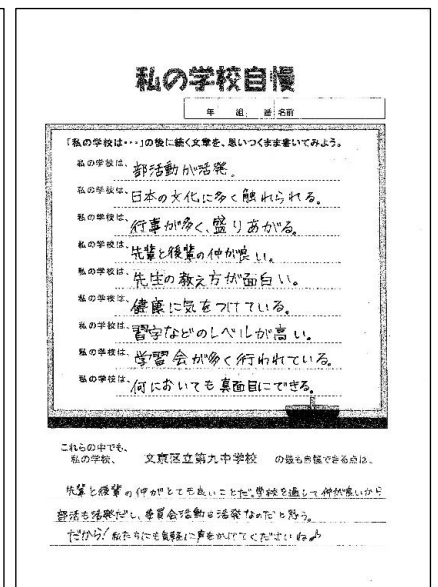 私の学校自慢
年 組 番 名前
「私の学校は・・・」の後に続く文章を、思いつくまま書いてみよう。
私の学校は、部活動が活発。
私の学校は、日本の文化に多く触れられる。
私の学校は、行事が多く、盛りあがる。
私の学校は、先輩と後輩の仲が良い。
私の学校は、先生の教え方が面白い。
私の学校は、健康に気をつけている。
私の学校は、習字などのレベルが高い。
私の学校は、学習会が多く行われている。
私の学校は、何においても真面目にできる。
これらの中でも、
私の学校、 文京区立第九中学校 の最も自慢できる点は、
先輩と後輩の仲がとても良いことだ。学校を通して仲が良いから
部活も活発だし、委員会活動も活発なのだと思う。
だから!私たちにも気軽に声をかけてくださいね♪